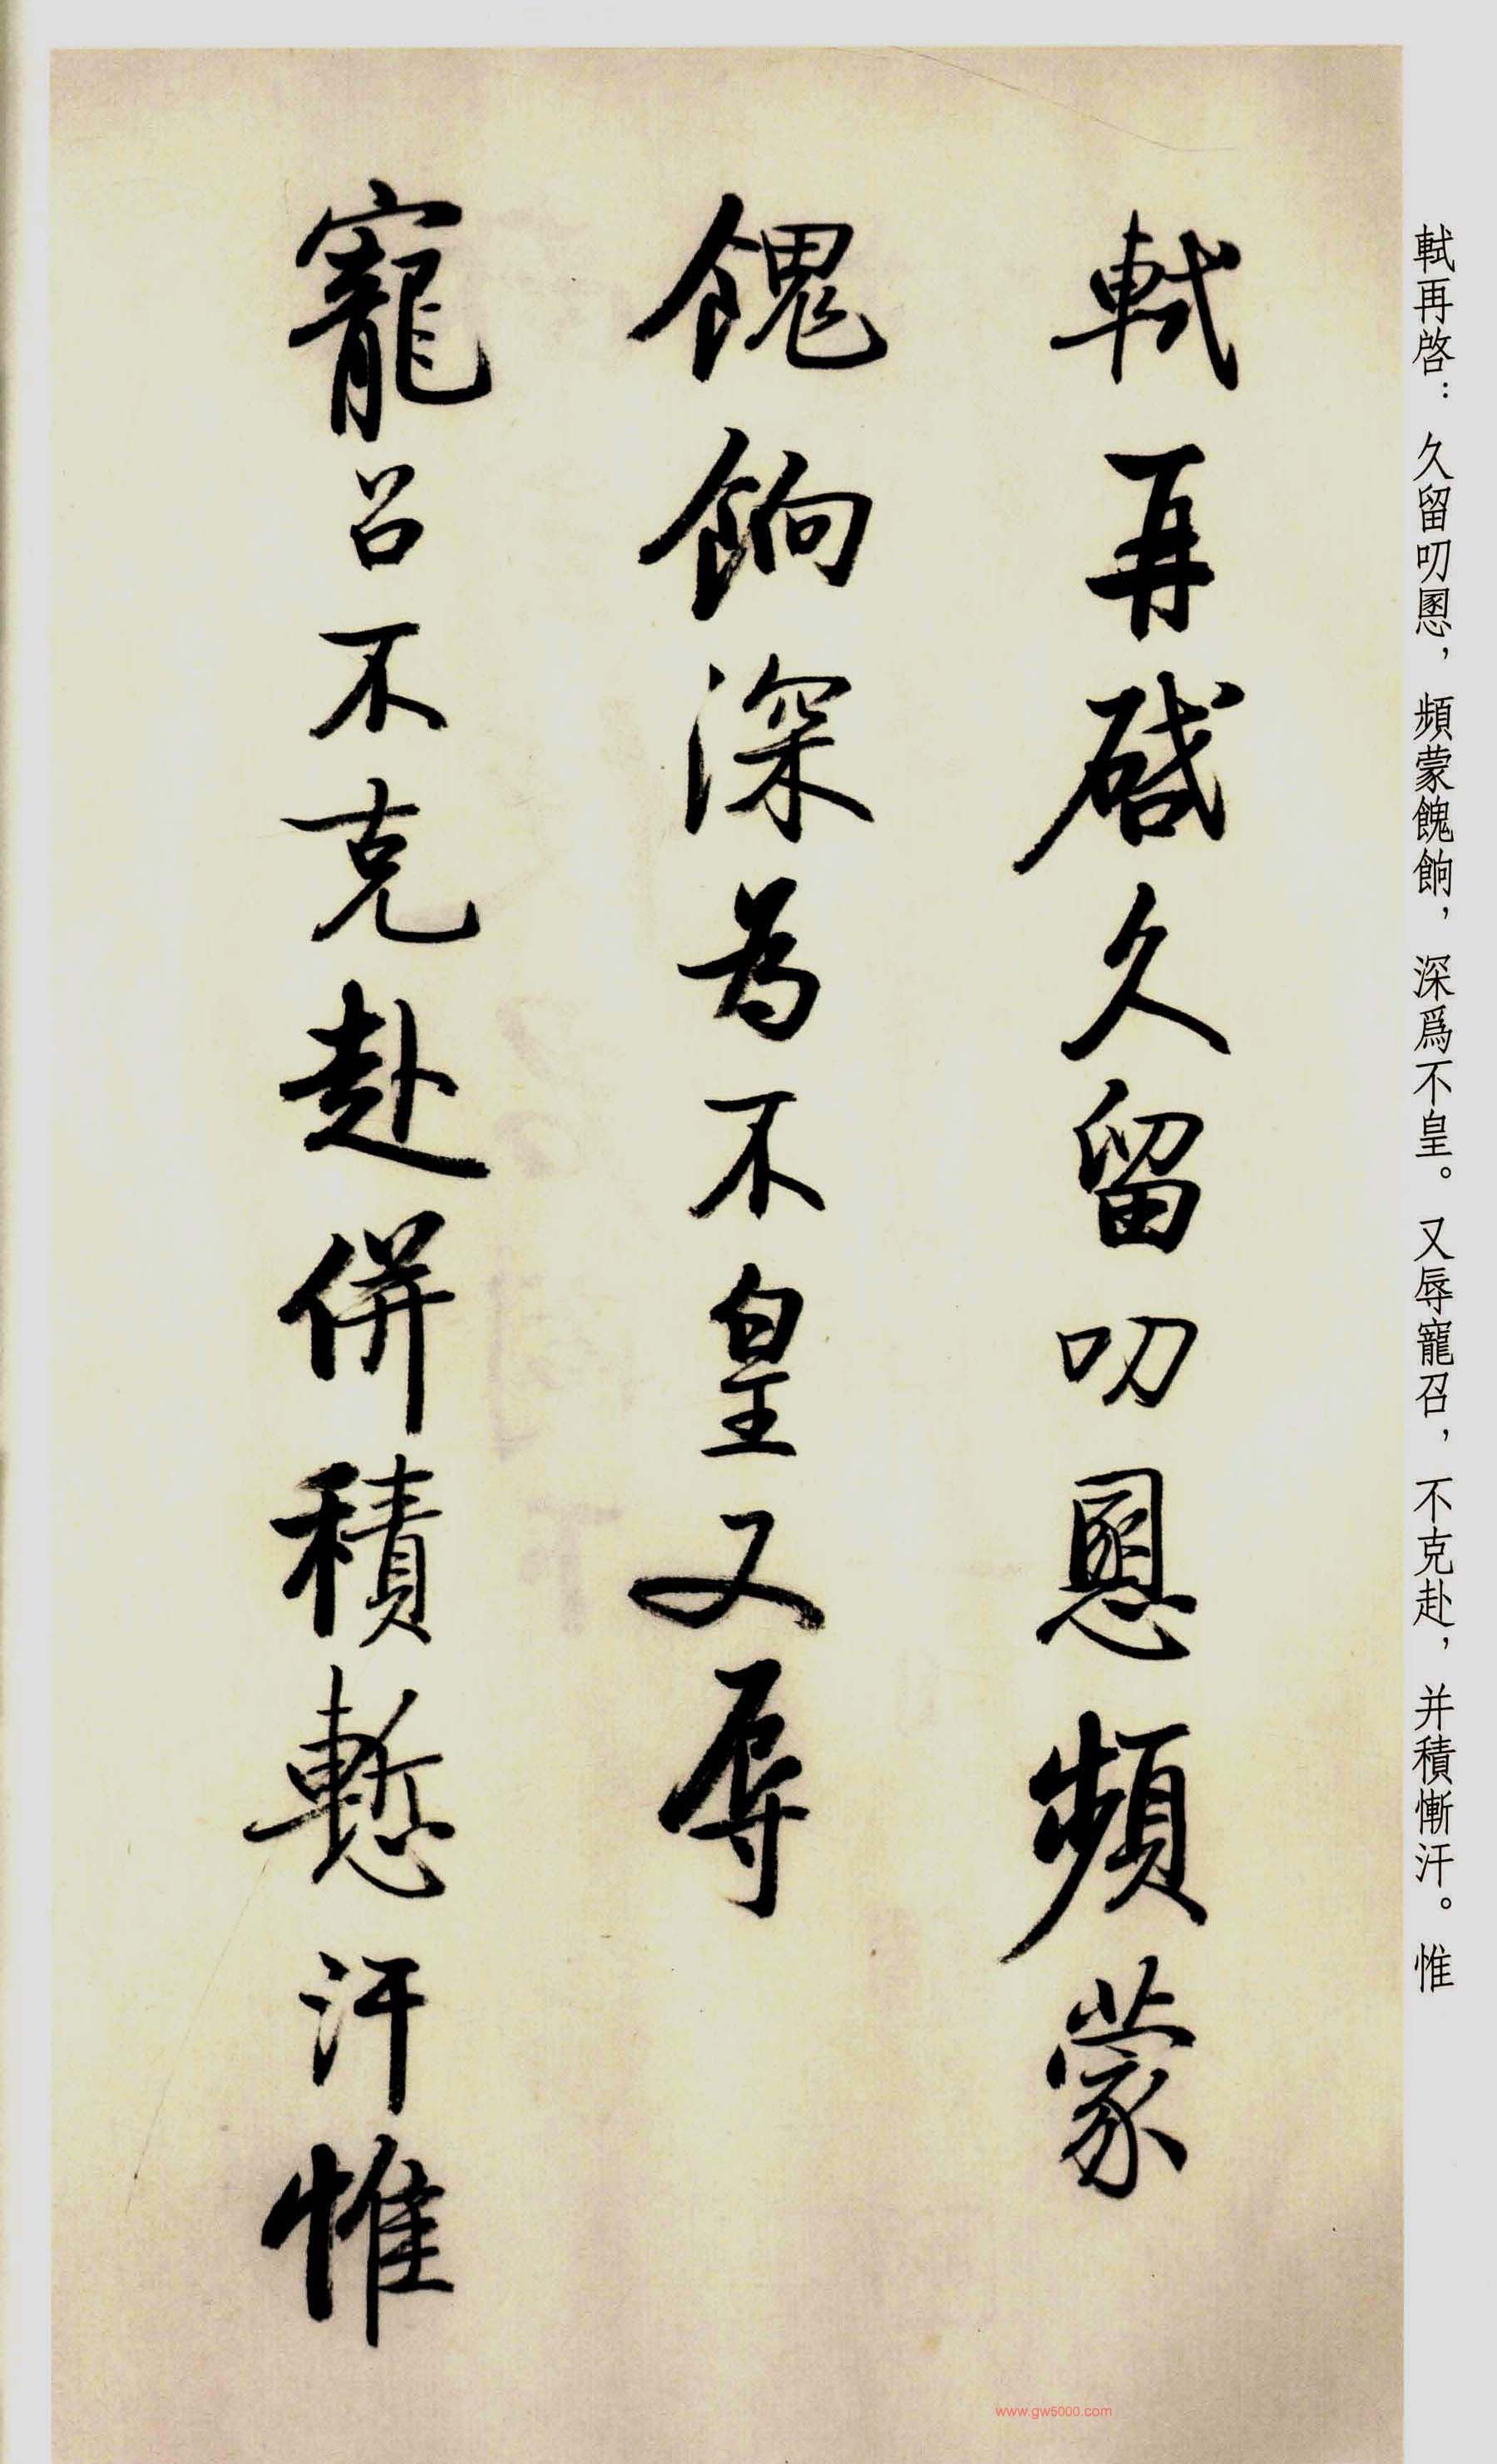 軾再啓：久留叨慁，頻蒙餽餉，深爲不皇。又辱寵召，不克赴，并積慚汗。惟
軾再啓久留叨慁頻蒙
餽餉深為不皇又辱
寵召不克赴併積慙汗惟
www.gw5000.com